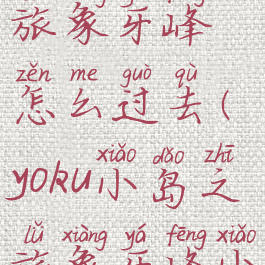 旅象牙峰
zěn me guò qù
怎么过去(
xiǎo dǎo zhī
yoku小岛之
lǚ xiàng yá fēng xiǎo